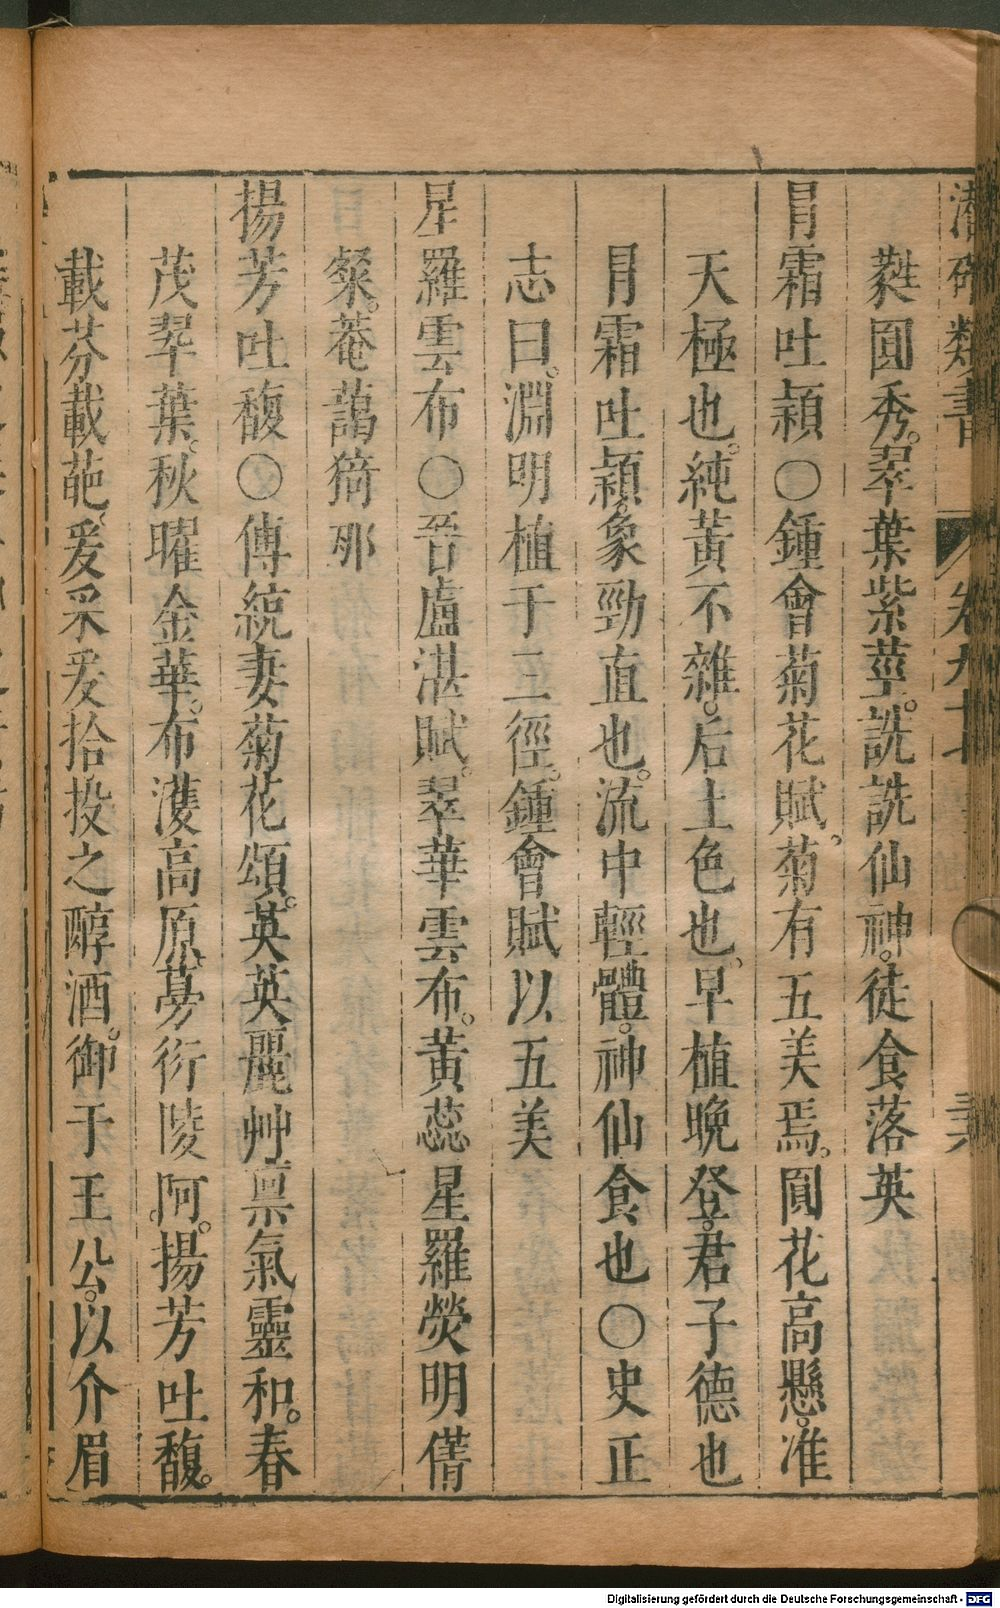 潛確類書 卷九十 三六
蕤圓秀。翠葉紫莖。詵詵仙神。徒食落英
冒霜吐穎〇鍾會菊花賦。菊有五美焉。圓花高懸。准
天極也。純黃不雜。后土色也。早植晚登。君子德也
冒霜吐穎。象勁直也。流中輕體。神仙食也〇史正
志曰。淵明植于三徑。鍾會賦以五美
星羅雲布〇晉盧湛賦。翠華雲布。黃蕊星羅熒明蒨
粲。菴藹猗那
揚芳吐馥〇傅統妻菊花頌。英英麗艸禀氣靈和。春
茂翠葉。秋曜金華。布濩高原。蔓衍陵阿。揚芳吐馥。
載芬載葩。爰采爰拾投之醇酒。御于王公。以介眉
Digitalisierung gefördert durch die Deutsche Forschungsgemeinschaft - DFG